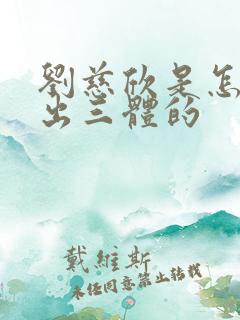 劉慈欣是怎
出三體的
戴維斯
未經同意禁止轉載